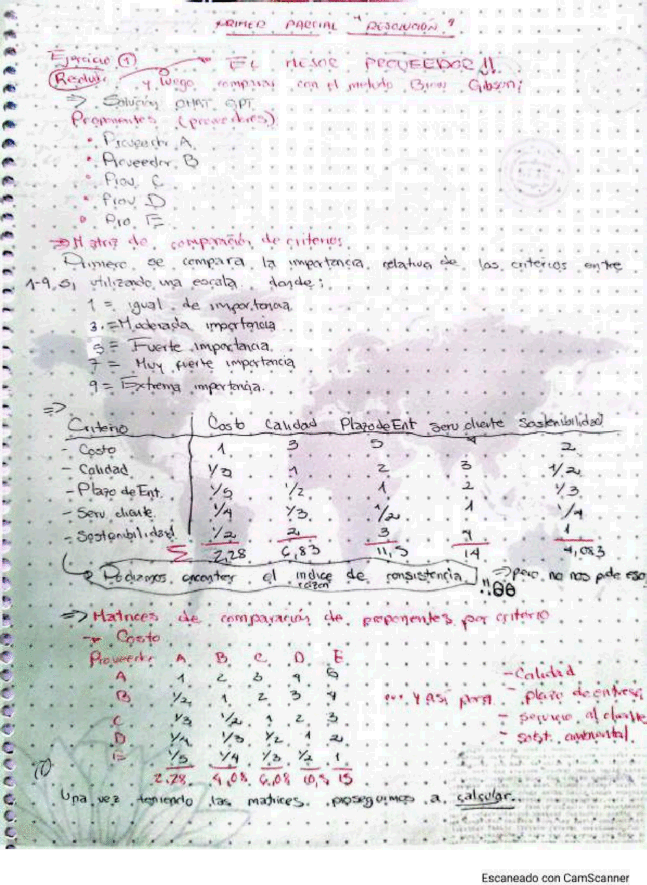 PRIMER PARCIAL "RESOLUCIÓN"
Ejercicio ① EL MEJOR PROVEEDOR!!
y luego comparar con el metodo Brow Gibson;
=> Solución
Proponentes (proveedores)
• Proveedor A
• Proveedor B
• Prov. C
• Prov. D
• Pro. E
=> Matriz de comparación de criterios
Primero se compara la importancia relativa de los criterios entre
1-9, si utilizando una escala donde:
1 = igual de importancia
3 = Moderada importancia
5 = Fuerte importancia
7 = Muy fuerte importancia
9 = Extrema importancia.
=>
Criterio Costo Calidad Plazo de Ent serv cliente Sostenibilidad
- Costo 1 3 5 4 2
- Calidad 1/3 1 2 3 1/2
- Plazo de Ent. 1/5 1/2 1 2 1/3
- Serv. cliente 1/4 1/3 1/2 1 1/4
- Sostenibilidad 1/2 2 3 4 1
Σ 2,28 6,83 11,5 14 4,083
Podriamos encontrar el indice de consistencia => pero no nos pide eso
razon
=> Matrices de comparación de proponentes por criterio
Costo
Proveedor A B C D E
A 1 2 3 4 5
- Calidad
B 1/2 1 2 3 4
... y así para
- plazo de entrega
C 1/3 1/2 1 2 3
- servicio al cliente
D 1/4 1/3 1/2 1 2
- sost. ambiental
E 1/5 1/4 1/3 1/2 1
2,28 4,08 6,08 10,5 15
Una vez teniendo las matrices proseguimos a calcular.
Escaneado con CamScanner